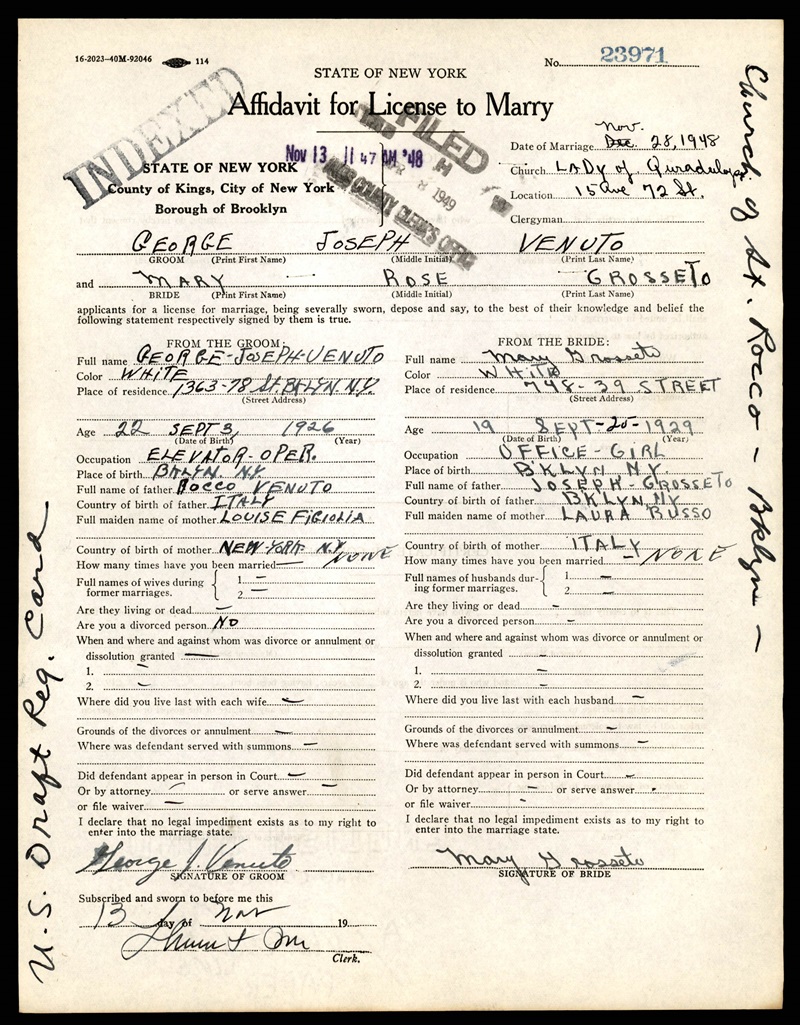 16-2023-40M-92046 114
No. 23971
STATE OF NEW YORK
Affidavit for License to Marry
INDEXED
FILED
Nov 13 11 47 AM '48
8 1949
KINGS COUNTY CLERK'S OFFICE
STATE OF NEW YORK
County of Kings, City of New York
Borough of Brooklyn
Nov.
Date of Marriage Dec. 28, 1948
Church LADY of Quradelope
Location 15 Ave 72 St.
Clergyman
GEORGE JOSEPH VENUTO
GROOM (Print First Name) (Middle Initial) (Print Last Name)
and MARY ROSE GROSSETO
BRIDE (Print First Name) (Middle Initial) (Print Last Name)
applicants for a license for marriage, being severally sworn, depose and say, to the best of their knowledge and belief the
following statement respectively signed by them is true.
FROM THE GROOM:
Full name GEORGE-JOSEPH-VENUTO
Color WHITE
Place of residence 1363-78 St. BKLYN. N.Y.
(Street Address)
Age 22 SEPT 3, 1926
(Date of Birth) (Year)
Occupation ELEVATOR-OPER.
Place of birth BKLYN. NY
Full name of father ROCCO VENUTO
Country of birth of father ITALY
Full maiden name of mother LOUISE
Country of birth of mother NEW-YORK N.Y
How many times have you been married — NONE
Full names of wives during former marriages. { 1 —
2 —
Are they living or dead —
Are you a divorced person NO
When and where and against whom was divorce or annulment or
dissolution granted —
1. —
2. —
Where did you live last with each wife —
Grounds of the divorces or annulment —
Where was defendant served with summons —
Did defendant appear in person in Court —
Or by attorney — or serve answer —
or file waiver —
I declare that no legal impediment exists as to my right to
enter into the marriage state.
George J. Venuto
SIGNATURE OF GROOM
Subscribed and sworn to before me this
13 day of Nov 19
Clerk.
FROM THE BRIDE:
Full name Mary Grosseto
Color WHITE
Place of residence 748-39 STREET
(Street Address)
Age 19 SEPT-25-1929
(Date of Birth) (Year)
Occupation OFFICE-GIRL
Place of birth BKLYN N.Y.
Full name of father JOSEPH-GROSSETO
Country of birth of father BKLYN, NY
Full maiden name of mother LAURA RUSSO
Country of birth of mother ITALY
How many times have you been married — NONE
Full names of husbands during former marriages. { 1 —
2. —
Are they living or dead —
Are you a divorced person —
When and where and against whom was divorce or annulment or
dissolution granted —
1. —
2. —
Where did you live last with each husband —
Grounds of the divorces or annulment —
Where was defendant served with summons —
Did defendant appear in person in Court —
Or by attorney — or serve answer
or file waiver -
I declare that no legal impediment exists as to my right to
enter into the marriage state.
Mary Grosseto
SIGNATURE OF BRIDE
U.S. Draft Reg. Card
Church of St. Rocco – Bklyn –